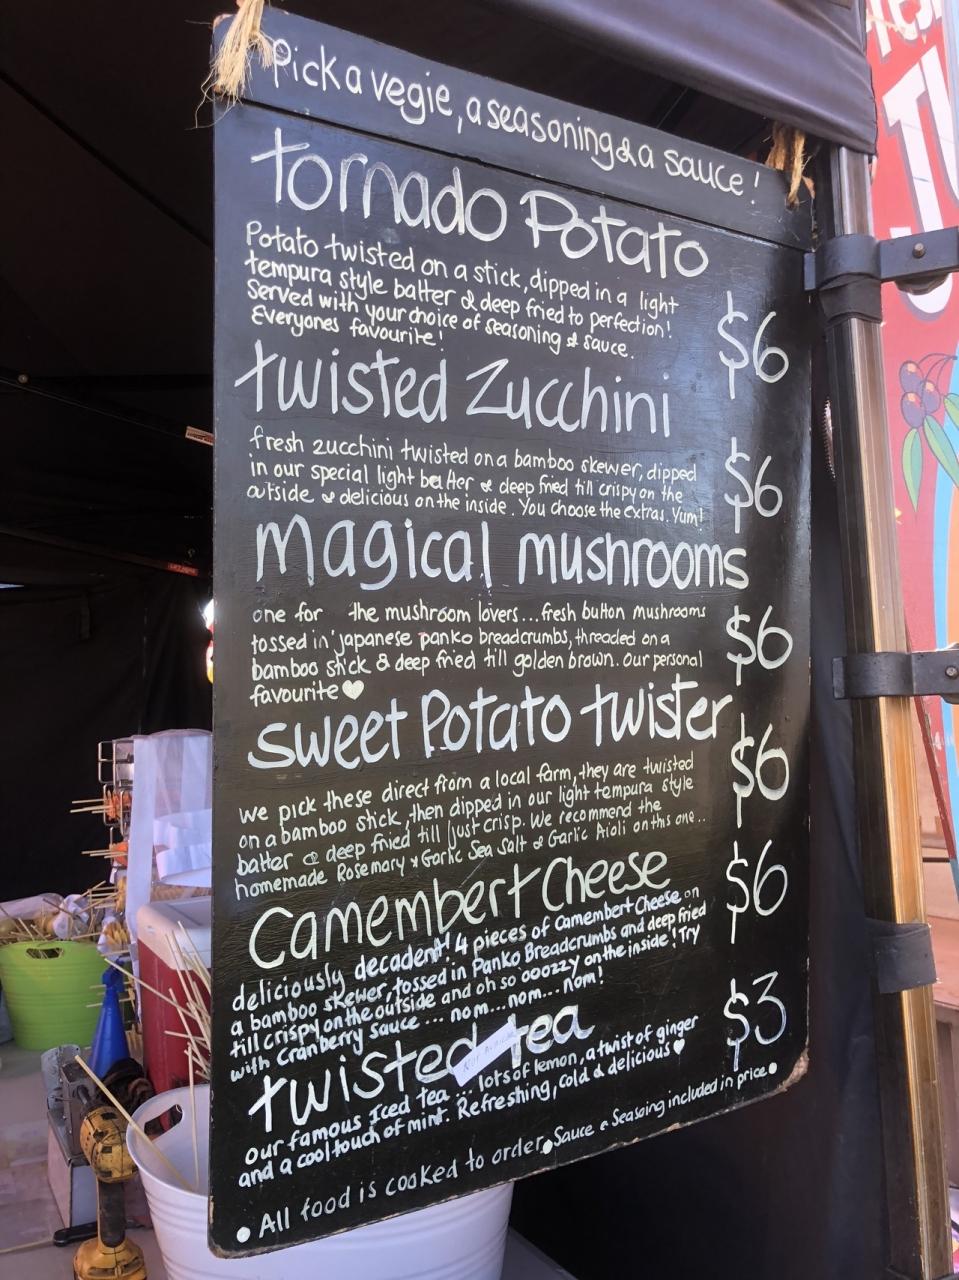 Pick a vegie, a seasoning & a sauce!
tornado Potato
Potato twisted on a stick, dipped in a light
tempura style batter & deep fried to perfection!
served with your choice of seasoning & sauce.
Everyones favourite!
$6
twisted Zucchini
fresh zucchini twisted on a bamboo skewer, dipped
in our special light batter & deep fried till crispy on the
outside & delicious on the inside. You choose the extras. Yum!
$6
magical mushrooms
one for the mushroom lovers...fresh button mushrooms
tossed in japanese panko breadcrumbs, threaded on a
bamboo stick & deep fried till golden brown. Our personal
favourite
$6
sweet Potato twister
we pick these direct from a local farm, they are twisted
on a bamboo stick, then dipped in our light tempura style
batter & deep fried till just crisp. We recommend the
homemade Rosemary & Garlic Sea Salt & Garlic Aioli on this one..
$6
Camembert Cheese
deliciously decadent! 4 pieces of Camembert Cheese on
a bamboo skewer, tossed in Panko Breadcrumbs and deep fried
till crispy on the outside and oh so ooozzy on the inside! Try
with Cranberry sauce ... nom...nom...nom!
$6
twisted tea
our famous Iced tea ... lots of lemon, a twist of ginger
and a cool touch of mint. Refreshing, cold & delicious
$3
• All food is cooked to order • Sauce & Seasoing included in price •